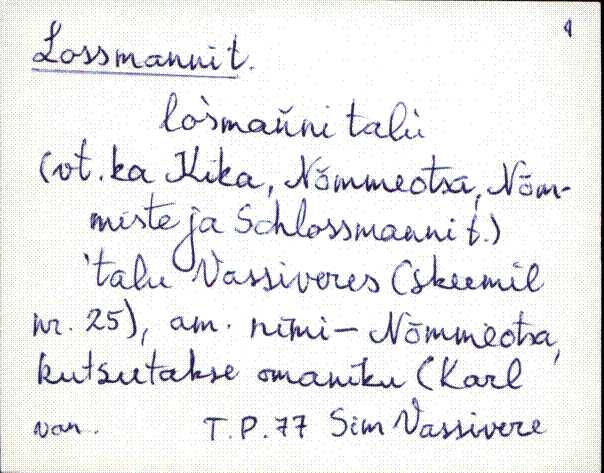 4
Lossmanni t.
lòsmañni talù
(vt. ka Kika, Nõmmeotsa, Nõm-
miste ja Schlossmanni t.)
'talu Vassiveres (skeemil
nr. 25), am. nimi – Nõmmeotsa,
kutsutakse omaniku (Karl
van. T.P.77 Sim Vassivere